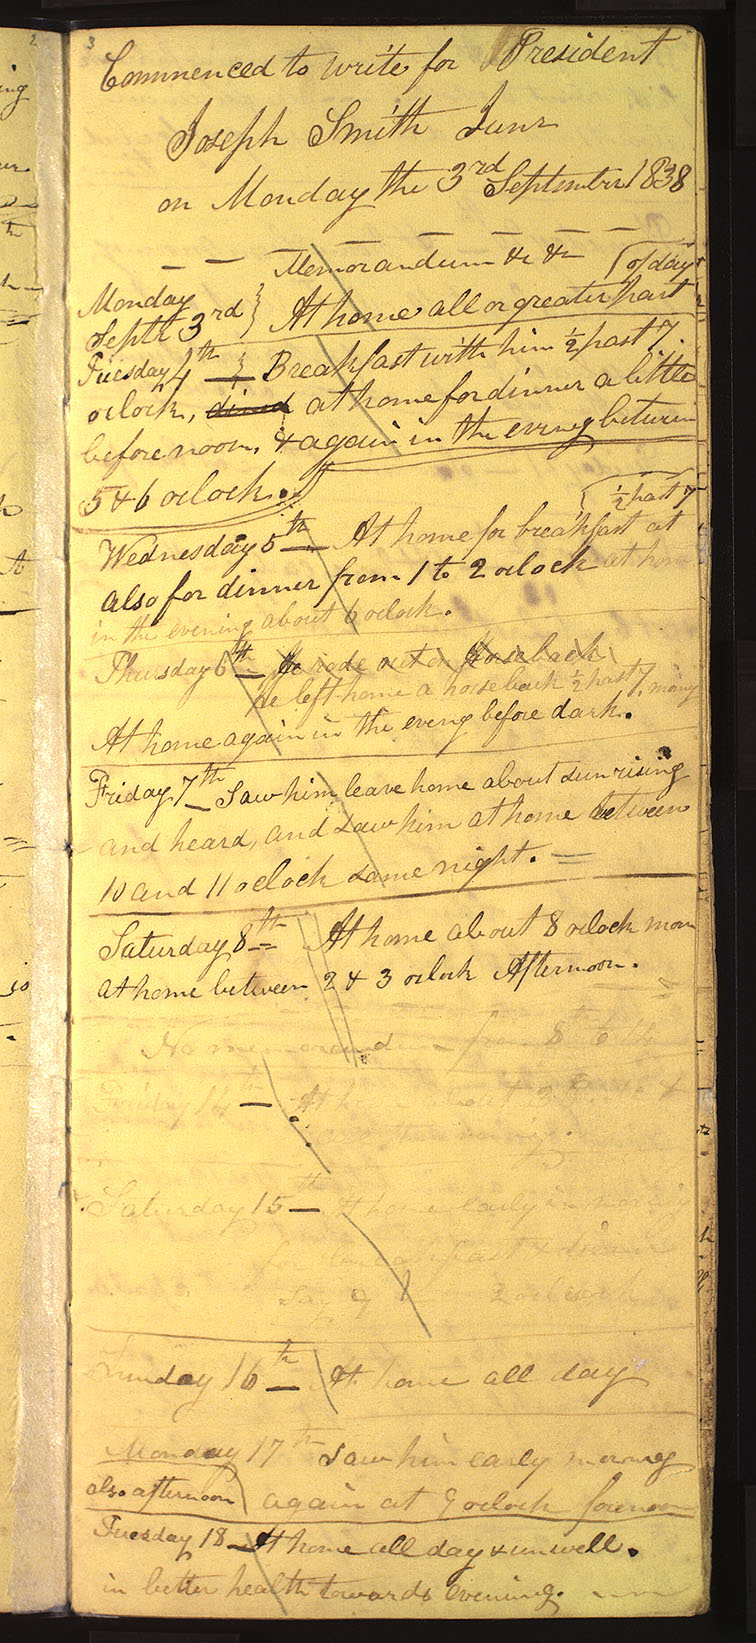 3
Commenced to write for President
Joseph Smith Junr
on Monday the 3rd September 1838
Memorandum &c &c
Monday
Septr 3rd } At home all or greater part of day
Tuesday 4th } Breakfast with him ½ past 7
oclock, dined at home for dinner a little
before noon, & again in the evening between
5 & 6 oclock.
Wednesday 5th At home for breakfast at ½ past 7
also for dinner from 1 to 2 oclock at home
in the evening about 6 oclock.
Thursday 6th He rode out on Horseback
He left home a horseback ½ past 7 mornig
At home again in the eveng before dark.
Friday 7th Saw him leave home about sunrising
and heard, and saw him at home between
10 and 11 oclock same night.
Saturday 8th At home about 8 oclock morn
at home between 2 & 3 oclock Afternoon.
No memorandum from 8th to 14
Friday 14th At home about
Saturday 15th At home early in mornig
for breakfast & dinner
say 9 2 oclock
Sunday 16th At home all day
Monday 17th Saw him early morning
also afternoon again at 9 oclock forenoon
Tuesday 18 At home all day & unwell.
in better health towards evening.